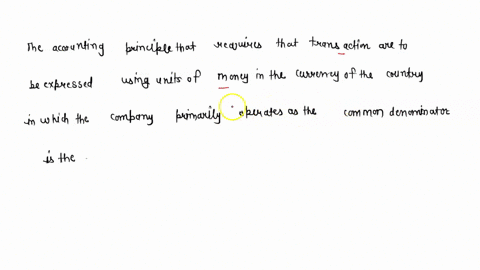 The accounting principle that requires that transaction are to
be expressed using units of money in the currency of the country
in which the company primarily operates as the common denominator
is the